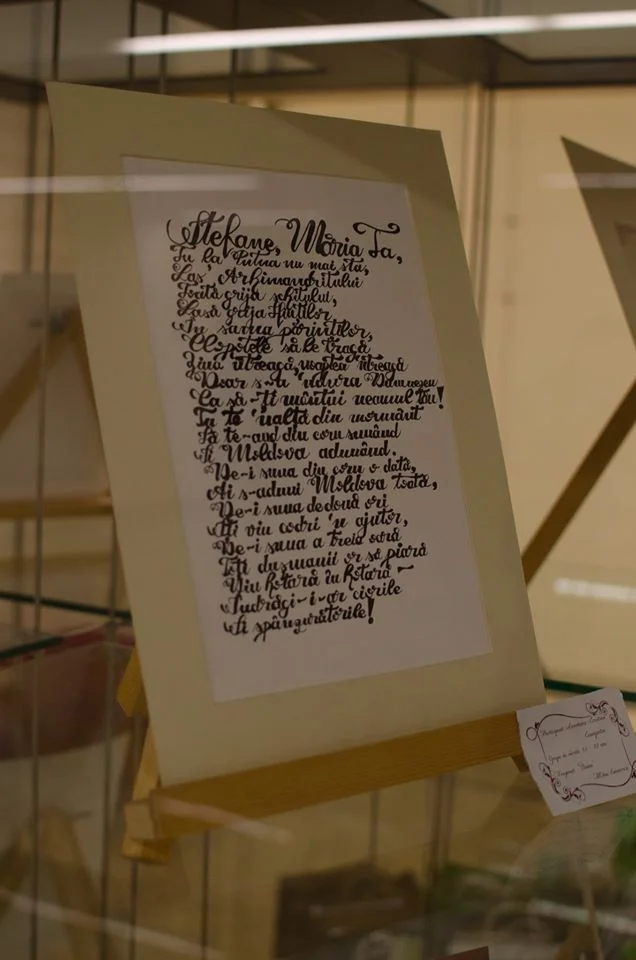 Ștefane, Măria Ta,
Tu la Putna nu mai sta,
Las' Arhimandritului
Toată grija schitului,
Lasă grija Sfinților
În sama părinților,
Clopotele să le tragă
Ziua 'ntreagă, noaptea 'ntreagă
Doar s-a 'ndura Dumnezeu
Ca să-ți mântui neamul tău!
Tu te 'nalță din mormânt
Să te-aud din corn sunând
Și Moldova adunând.
De-i suna din corn o dată,
Ai s-aduni Moldova toată,
De-i suna de două ori
Îți vin codri 'n ajutor,
De-i suna a treia oară
Toți dușmanii or să piară
Din hotară în hotară –
Îndrăgi-i-ar ciorile
Și spânzurătorile!
Participant:
Grupa de vârstă
Fragment "Doina"
Mihai Eminescu